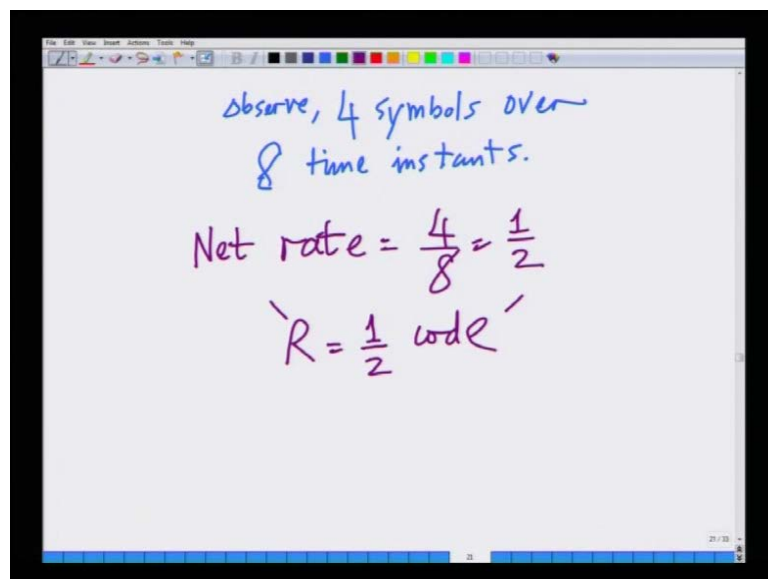 File Edit View Insert Actions Tools Help
B I
Observe, 4 symbols over
8 time instants.
Net rate = 4/8 = 1/2
"R = 1/2 code"
21 / 33
21